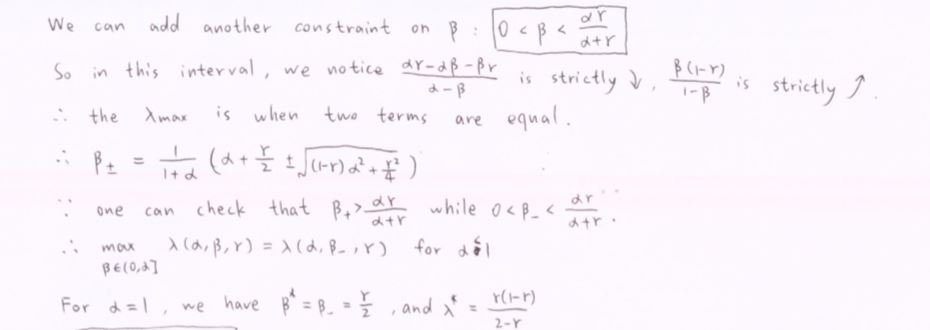 We can add another constraint on β : 0 < β < αr/(α+r)
So in this interval, we notice (αr-αβ-βr)/(α-β) is strictly ↓, β(1-r)/(1-β) is strictly ↗.
∴ the λmax is when two terms are equal.
∴ β± = 1/(1+α) (α + r/2 ± √((1-r)α² + r²/4))
∵ one can check that β+ > αr/(α+r) while 0 < β- < αr/(α+r).
∴ max β∈(0,α] λ(α,β,r) = λ(α,β-,r) for α 1
For α=1, we have β* = β- = r/2, and λ* = r(1-r)/(2-r)